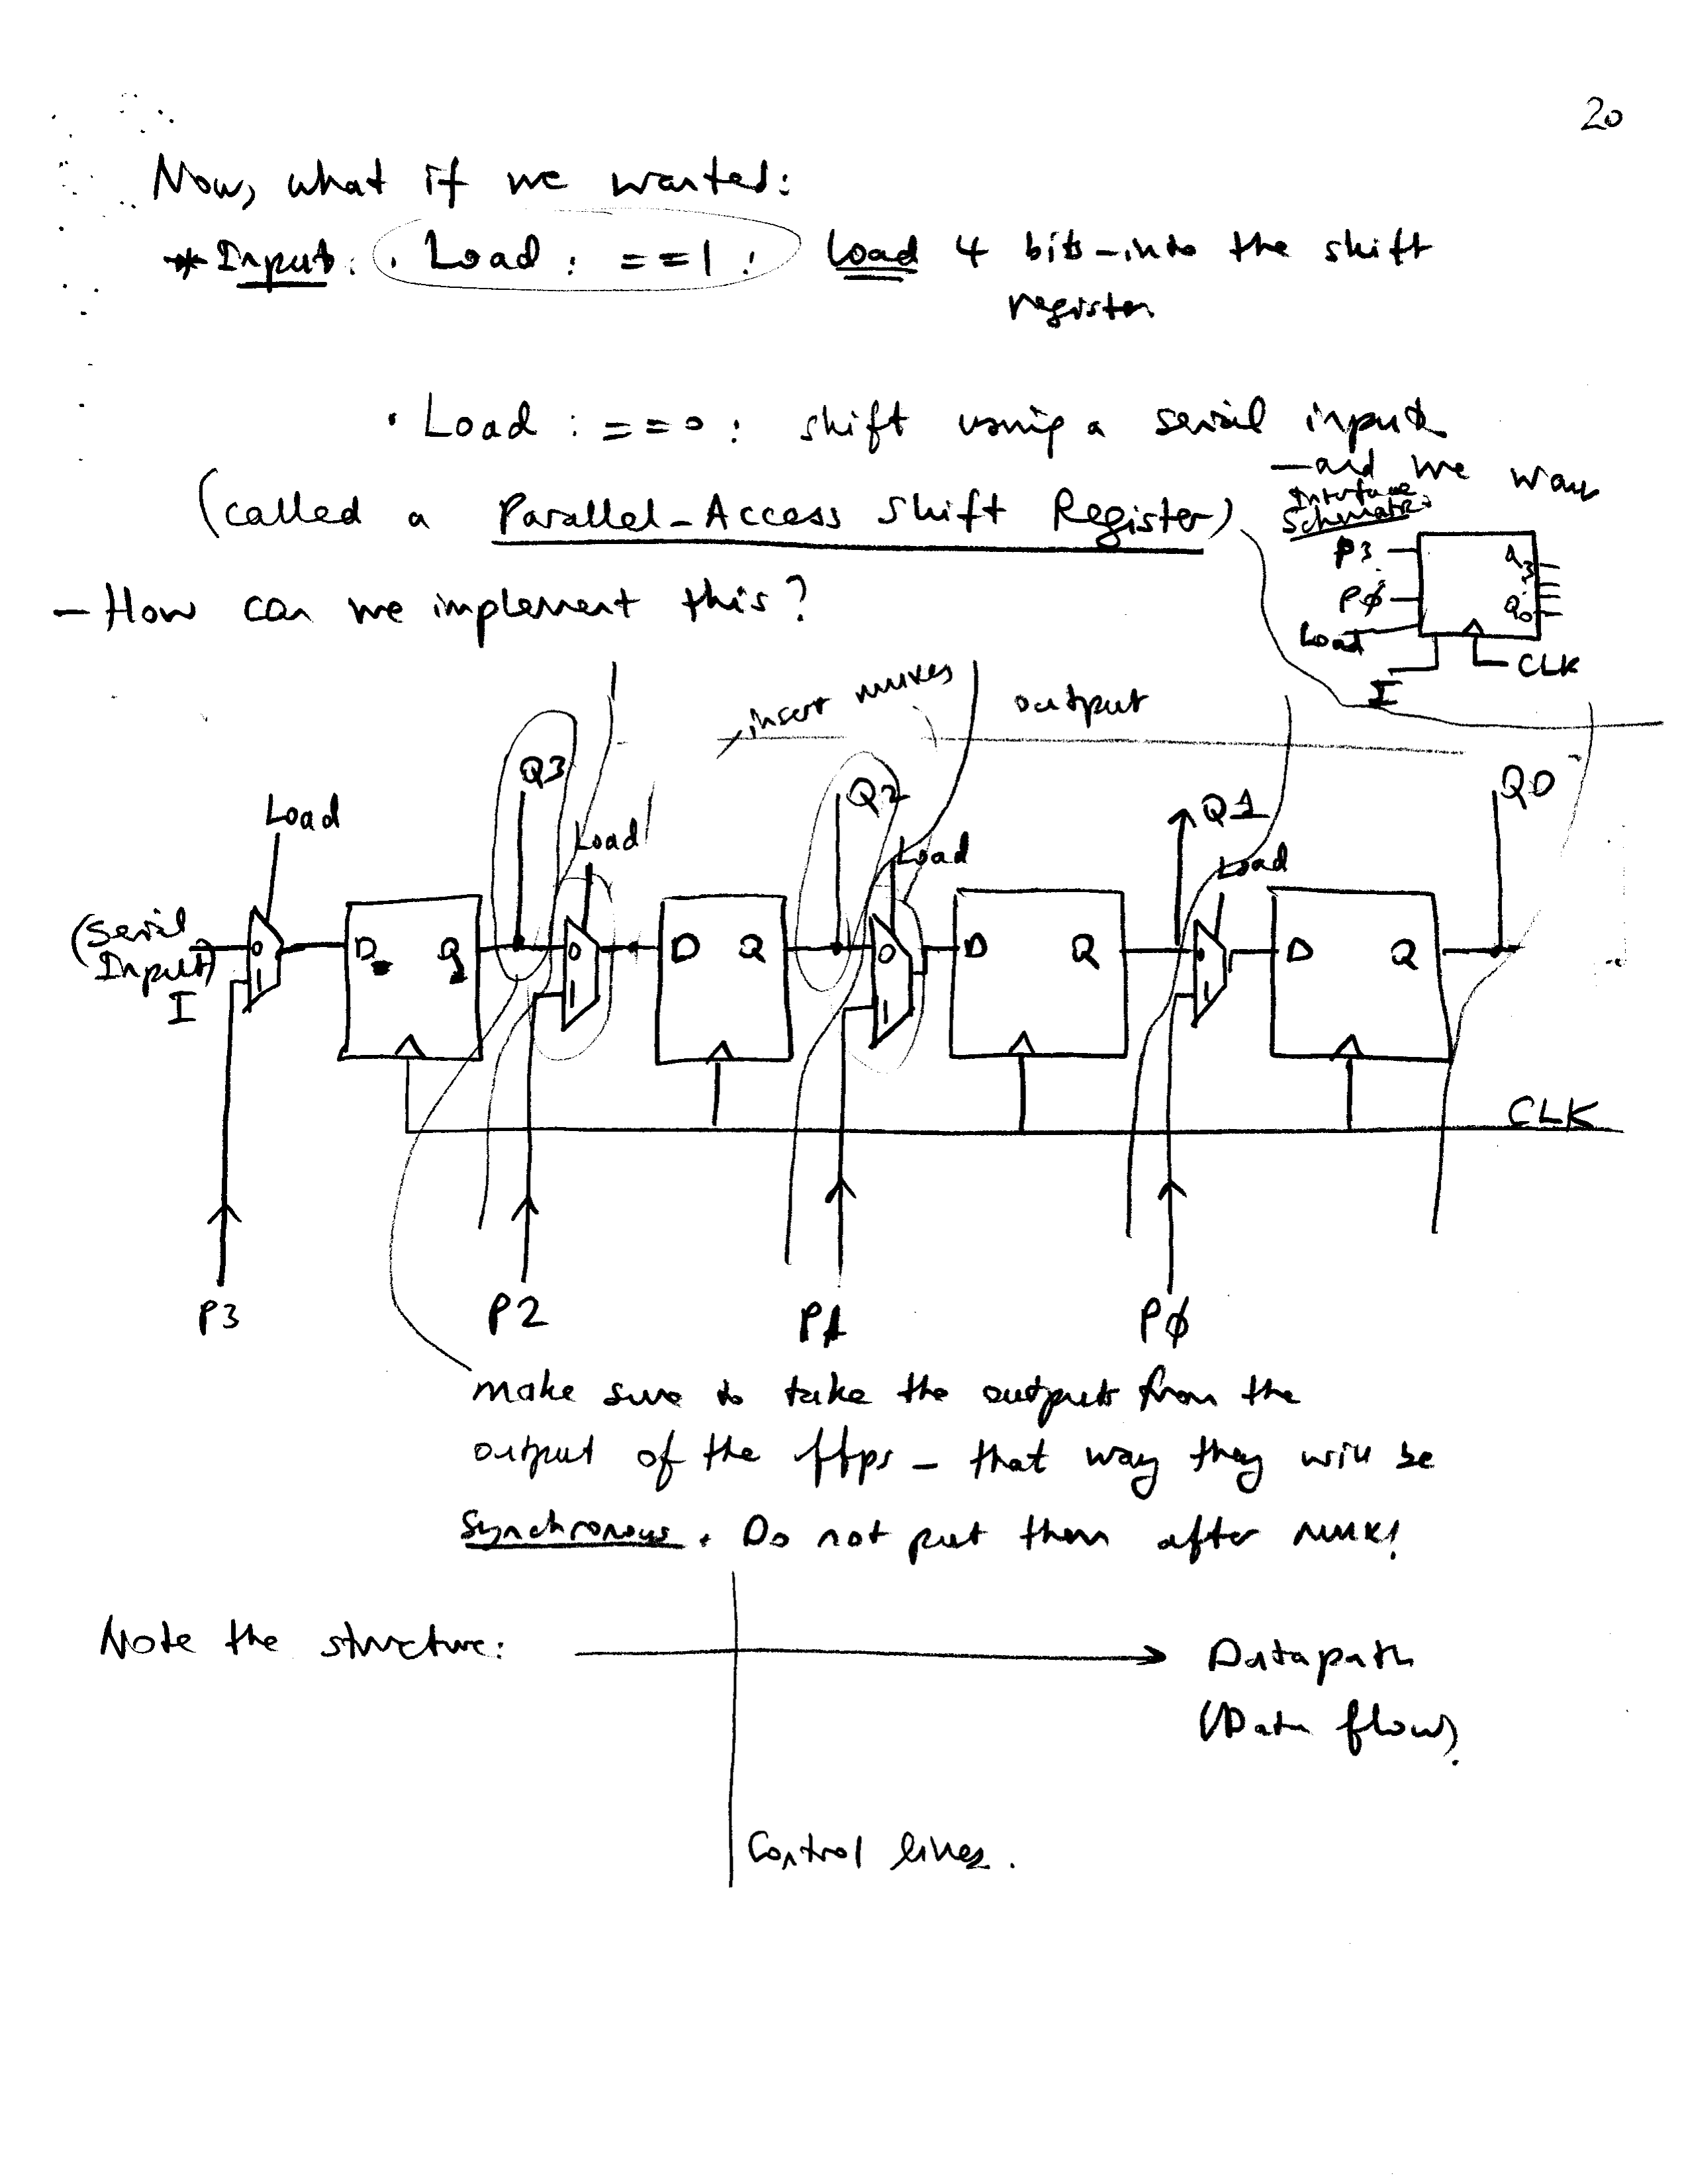 20
Now, what if we wanted:
* Input: . Load : ==1 : Load 4 bits - into the shift
register
. Load : ==0 : shift using a serial input
- and we want
(called a Parallel-Access Shift Register)
Interface
Schematic:
P3
Q3
:
PØ
Q0
Load
I
CLK
- How can we implement this?
insert muxes
output
Q3
Q2
Q1
Q0
Load
Load
Load
Load
(Serial
Input)
I
0
1
D
Q
0
1
D
Q
0
1
D
Q
0
1
D
Q
CLK
P3
P2
P1
PØ
make sure to take the outputs from the
output of the ffps - that way they will be
synchronous. Do not put them after mux!
Note the structure:
Datapath
(Data flow).
Control lines.